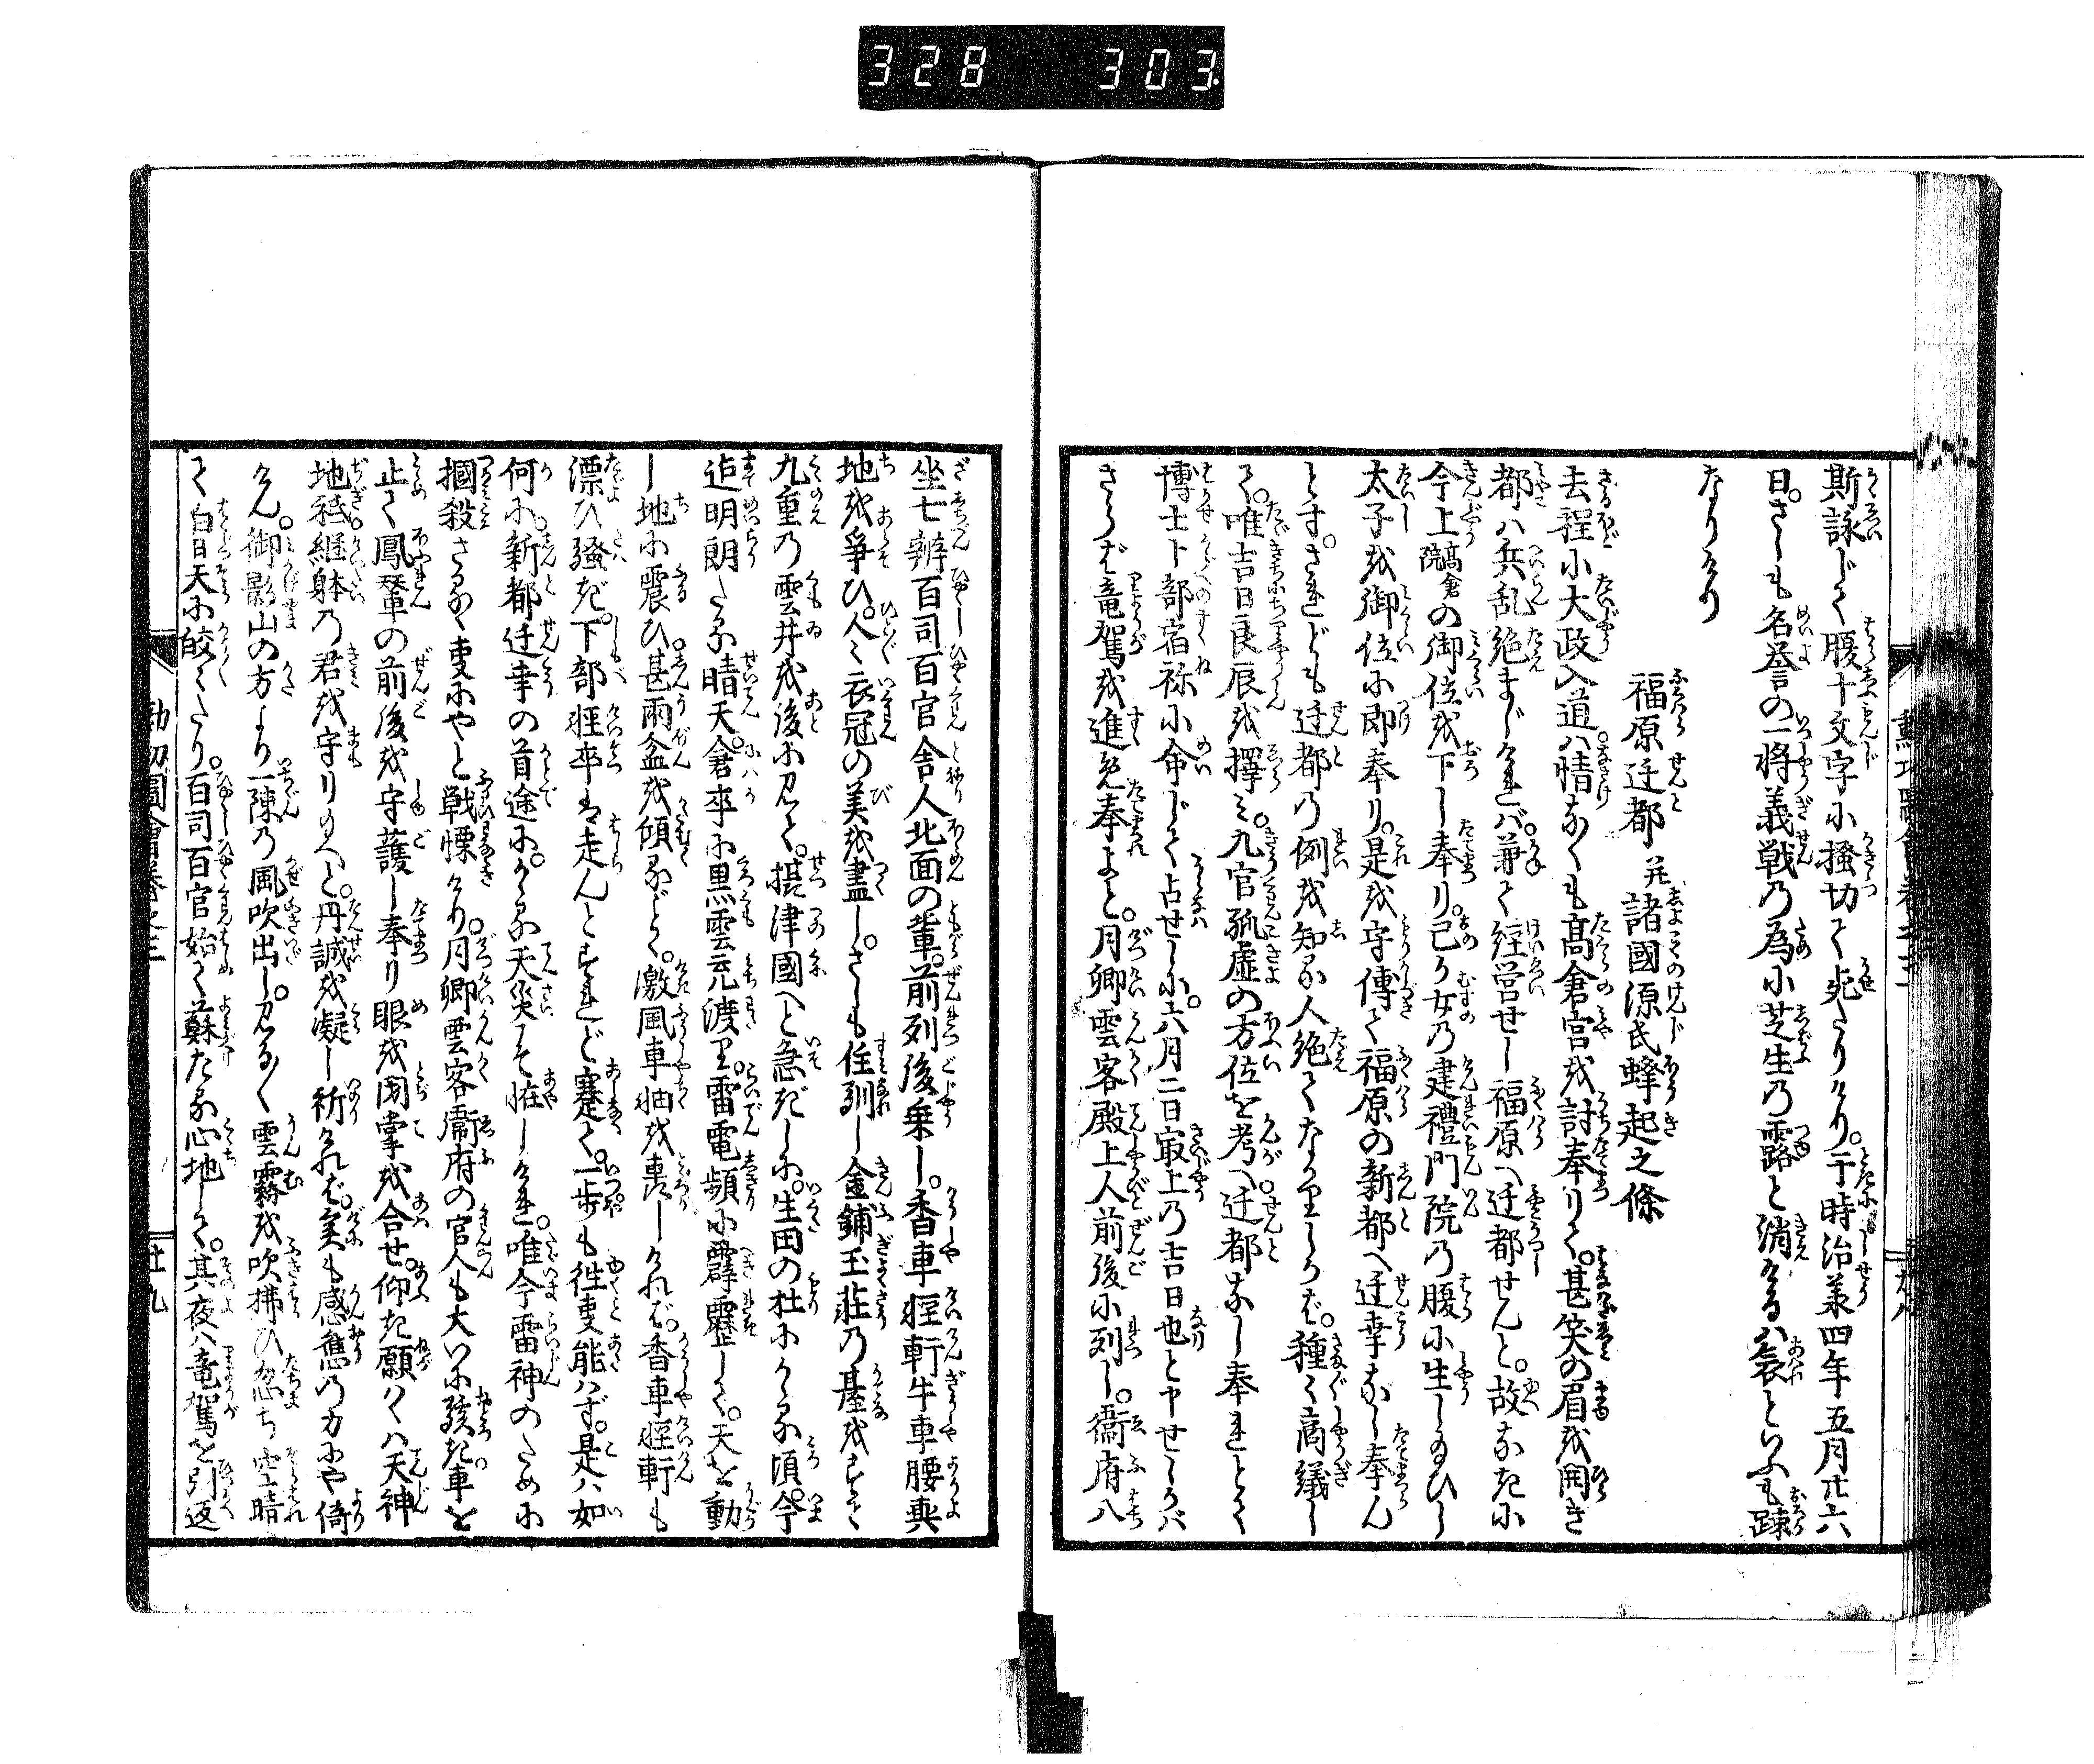 328 303
斯詠じて腹十文字に掻切て死たりけり。于時治承四年五月廿六
日。さしも名誉の一将義戦の為に芝生の露と消けるハ哀といふも疎
なりけり
福原迁都 并 諸國源氏蜂起之條
去程に大政入道ハ情なくも高倉宮を討奉りて。甚笑の眉を開き
都ハ兵乱絶まじけれバ。兼て経営せし福原へ迁都せんと。故なきに
今上高倉院の御位を下し奉り。己が女の建禮門院の腹に生し給ひし
太子を御位に即奉り。是を守傳て福原の新都へ迁幸なし奉ん
とす。されども迁都の例を知る人絶てなかりしかば。種々商議し
て。唯吉日良辰を擇み。九官孤虚の方位を考へ迁都なし奉れとて
博士卜部宿祢に命じて占せしに。六月二日最上の吉日也と申せしかバ
さらば竜駕を進め奉よと。月卿雲客殿上人前後に列し。衞府八
坐七辨百司百官舎人北面の輩。前列後乗し。香車軽軒牛車腰輿
地を爭ひ。人々衣冠の美を盡し。さしも住馴し金鋪玉荘の基をすて
九重の雲井を後に見て。摂津國へと急ぎしに。生田の杜にかゝる頃。今
迄明朗たる晴天。倉卒に黒雲立渡り。雷電頻に霹靂して。天を動
し地に震ひ。甚雨盆を傾るごとく。激風車軸を轟しければ。香車軽軒も
漂ひ騒ぎ。下部軽卒も走んとすれど蹇て。一歩も徃叓能ハず。是ハ如
何に。新都迁幸の首途に。かゝる天災こそ恠しけれ。唯今雷神のために
摑殺さるゝ叓にやと戦慄けり。月卿雲客衞府の官人も大いに駭き車を
止て鳳輦の前後を守護し奉り眼を閉掌を合せ。仰ぎ願くハ天神
地祗。継躰の君を守り給へと。丹誠を凝し祈ければ。実も感應の力にや倚
けん。御影山の方より一陳の風吹出し。見る〱雲霧を吹拂ひ忽ち空晴
て白日天に皎々たり。百司百官始て蘇たる心地して。其夜ハ竜駕を引返
勲功圖會巻之二
廿九